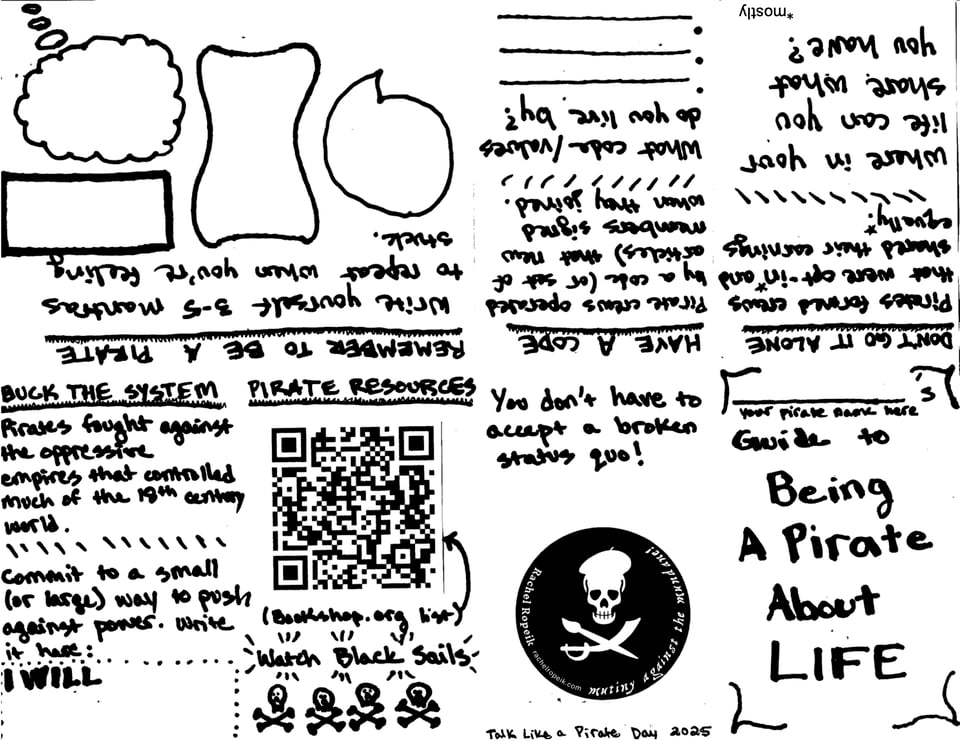 REMEMBER TO BE A PIRATE
Write yourself 3-5 mantras
to repeat when you're feeling
stuck.
HAVE A CODE
Pirate crews operated
by a code (or set of
articles) that new
members signed
when they joined.
What code/values
do you live by?
DON'T GO IT ALONE
Pirates formed crews
that were opt-in* and
shared their earnings
equally.*
Where in your
life can you
share what
you have?
*mostly
BUCK THE SYSTEM
Pirates fought against
the oppressive
empires that controlled
much of the 18th century
world.
Commit to a small
(or large) way to push
against power. Write
it here:
I WILL
PIRATE RESOURCES
(Bookshop.org list)
Watch Black Sails
You don't have to
accept a broken
status quo!
Rachel Ropeik
rachelropeik.com
mutiny against the mundane!
Talk Like a Pirate Day 2025
's
your pirate name here
Guide to
Being
A Pirate
About
LIFE